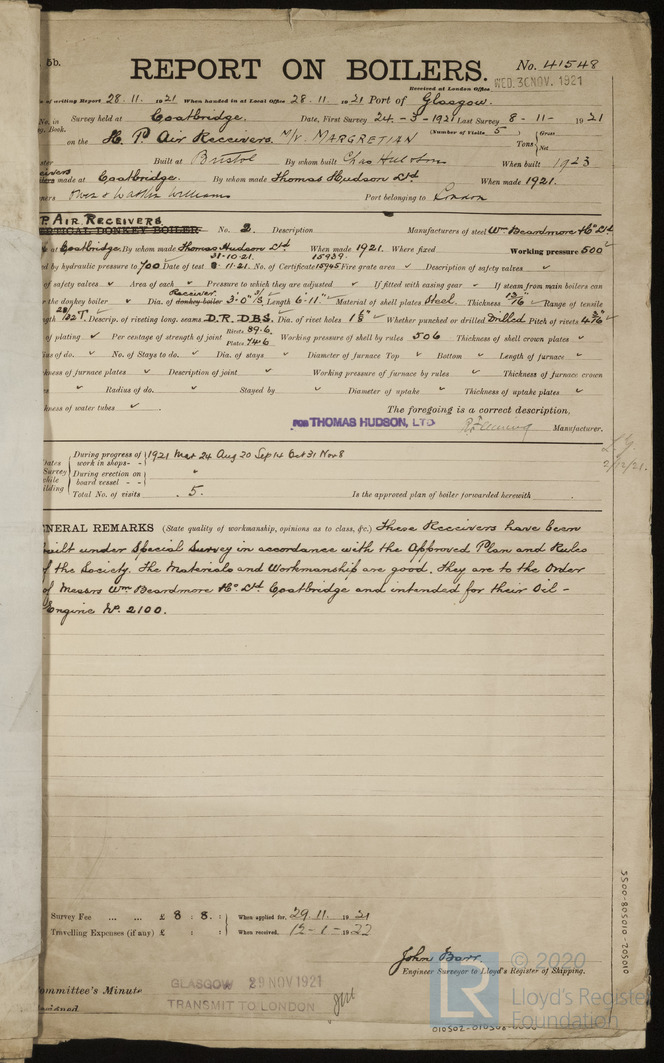 5b.
REPORT ON BOILERS.
No. 41548
Received at London Office WED. 30 NOV. 1921
of writing Report 28. 11. 1921 When handed in at Local Office 28. 11. 1921 Port of Glasgow.
No. in Survey held at Coatbridge. Date, First Survey 24 - 3 - 1921 Last Survey 8 - 11 - 1921
Book. (Number of Visits 5)
on the H. P. Air Receivers. M/V. MARGRETIAN Tons { Gross Net
Built at Bristol By whom built Chas Hill & Son When built 1923
made at Coatbridge. By whom made Thomas Hudson Ltd When made 1921.
ners Owen & Watkin Williams Port belonging to London
P. AIR RECEIVERS
VERTICAL DONKEY BOILER No. 2. Description Manufacturers of steel Wm Beardmore & Co Ltd
at Coatbridge. By whom made Thomas Hudson Ltd When made 1921. Where fixed Working pressure 500
31-10-21. 15939
by hydraulic pressure to 700 Date of test 8-11-21. No. of Certificate 15945 Fire grate area ✓ Description of safety valves ✓
of safety valves ✓ Area of each ✓ Pressure to which they are adjusted ✓ If fitted with easing gear ✓ If steam from main boilers can
Receiver
the donkey boiler ✓ Dia. of donkey boiler 3'-0" 1/8 Length 6-11" Material of shell plates Steel. Thickness 13/16" Range of tensile
28/32 T. Descrip. of riveting long. seams D.R. D.B.S. Dia. of rivet holes 1 1/8" Whether punched or drilled Drilled Pitch of rivets 4 3/16"
of plating ✓ Per centage of strength of joint Rivets 89.6. Plates 74.6 Working pressure of shell by rules 506 Thickness of shell crown plates ✓
ius of do. ✓ No. of Stays to do. ✓ Dia. of stays ✓ Diameter of furnace Top ✓ Bottom ✓ Length of furnace ✓
kness of furnace plates ✓ Description of joint ✓ Working pressure of furnace by rules ✓ Thickness of furnace crown
s ✓ Radius of do. ✓ Stayed by ✓ Diameter of uptake ✓ Thickness of uptake plates ✓
kness of water tubes ✓
The foregoing is a correct description,
FOR THOMAS HUDSON, LTD Manufacturer.
2/12/21.
Dates Survey while Building
During progress of work in shops - - 1921 Mar 24 Aug 20 Sep 14 Oct 31 Nov 8
During erection on board vessel - - "
Total No. of visits 5.
Is the approved plan of boiler forwarded herewith
NERAL REMARKS (State quality of workmanship, opinions as to class, &c.) These Receivers have been
built under Special Survey in accordance with the Approved Plan and Rules
of the Society. The Materials and Workmanship are good. They are to the Order
of Messrs Wm Beardmore & Co Ltd Coatbridge and intended for their Oil -
Engine No. 2100.
Survey Fee ... ... £ 8 : 8 : When applied for, 29. 11. 1921
Travelling Expenses (if any) £ : : When received, 12 - 1 - 1922
John Barr
Engineer Surveyor to Lloyd's Register of Shipping.
ommittee's Minute
GLASGOW 29 NOV 1921
TRANSMIT TO LONDON
ssigned
LR
© 2020
Lloyd's Register
Foundation
5500-805010-205010